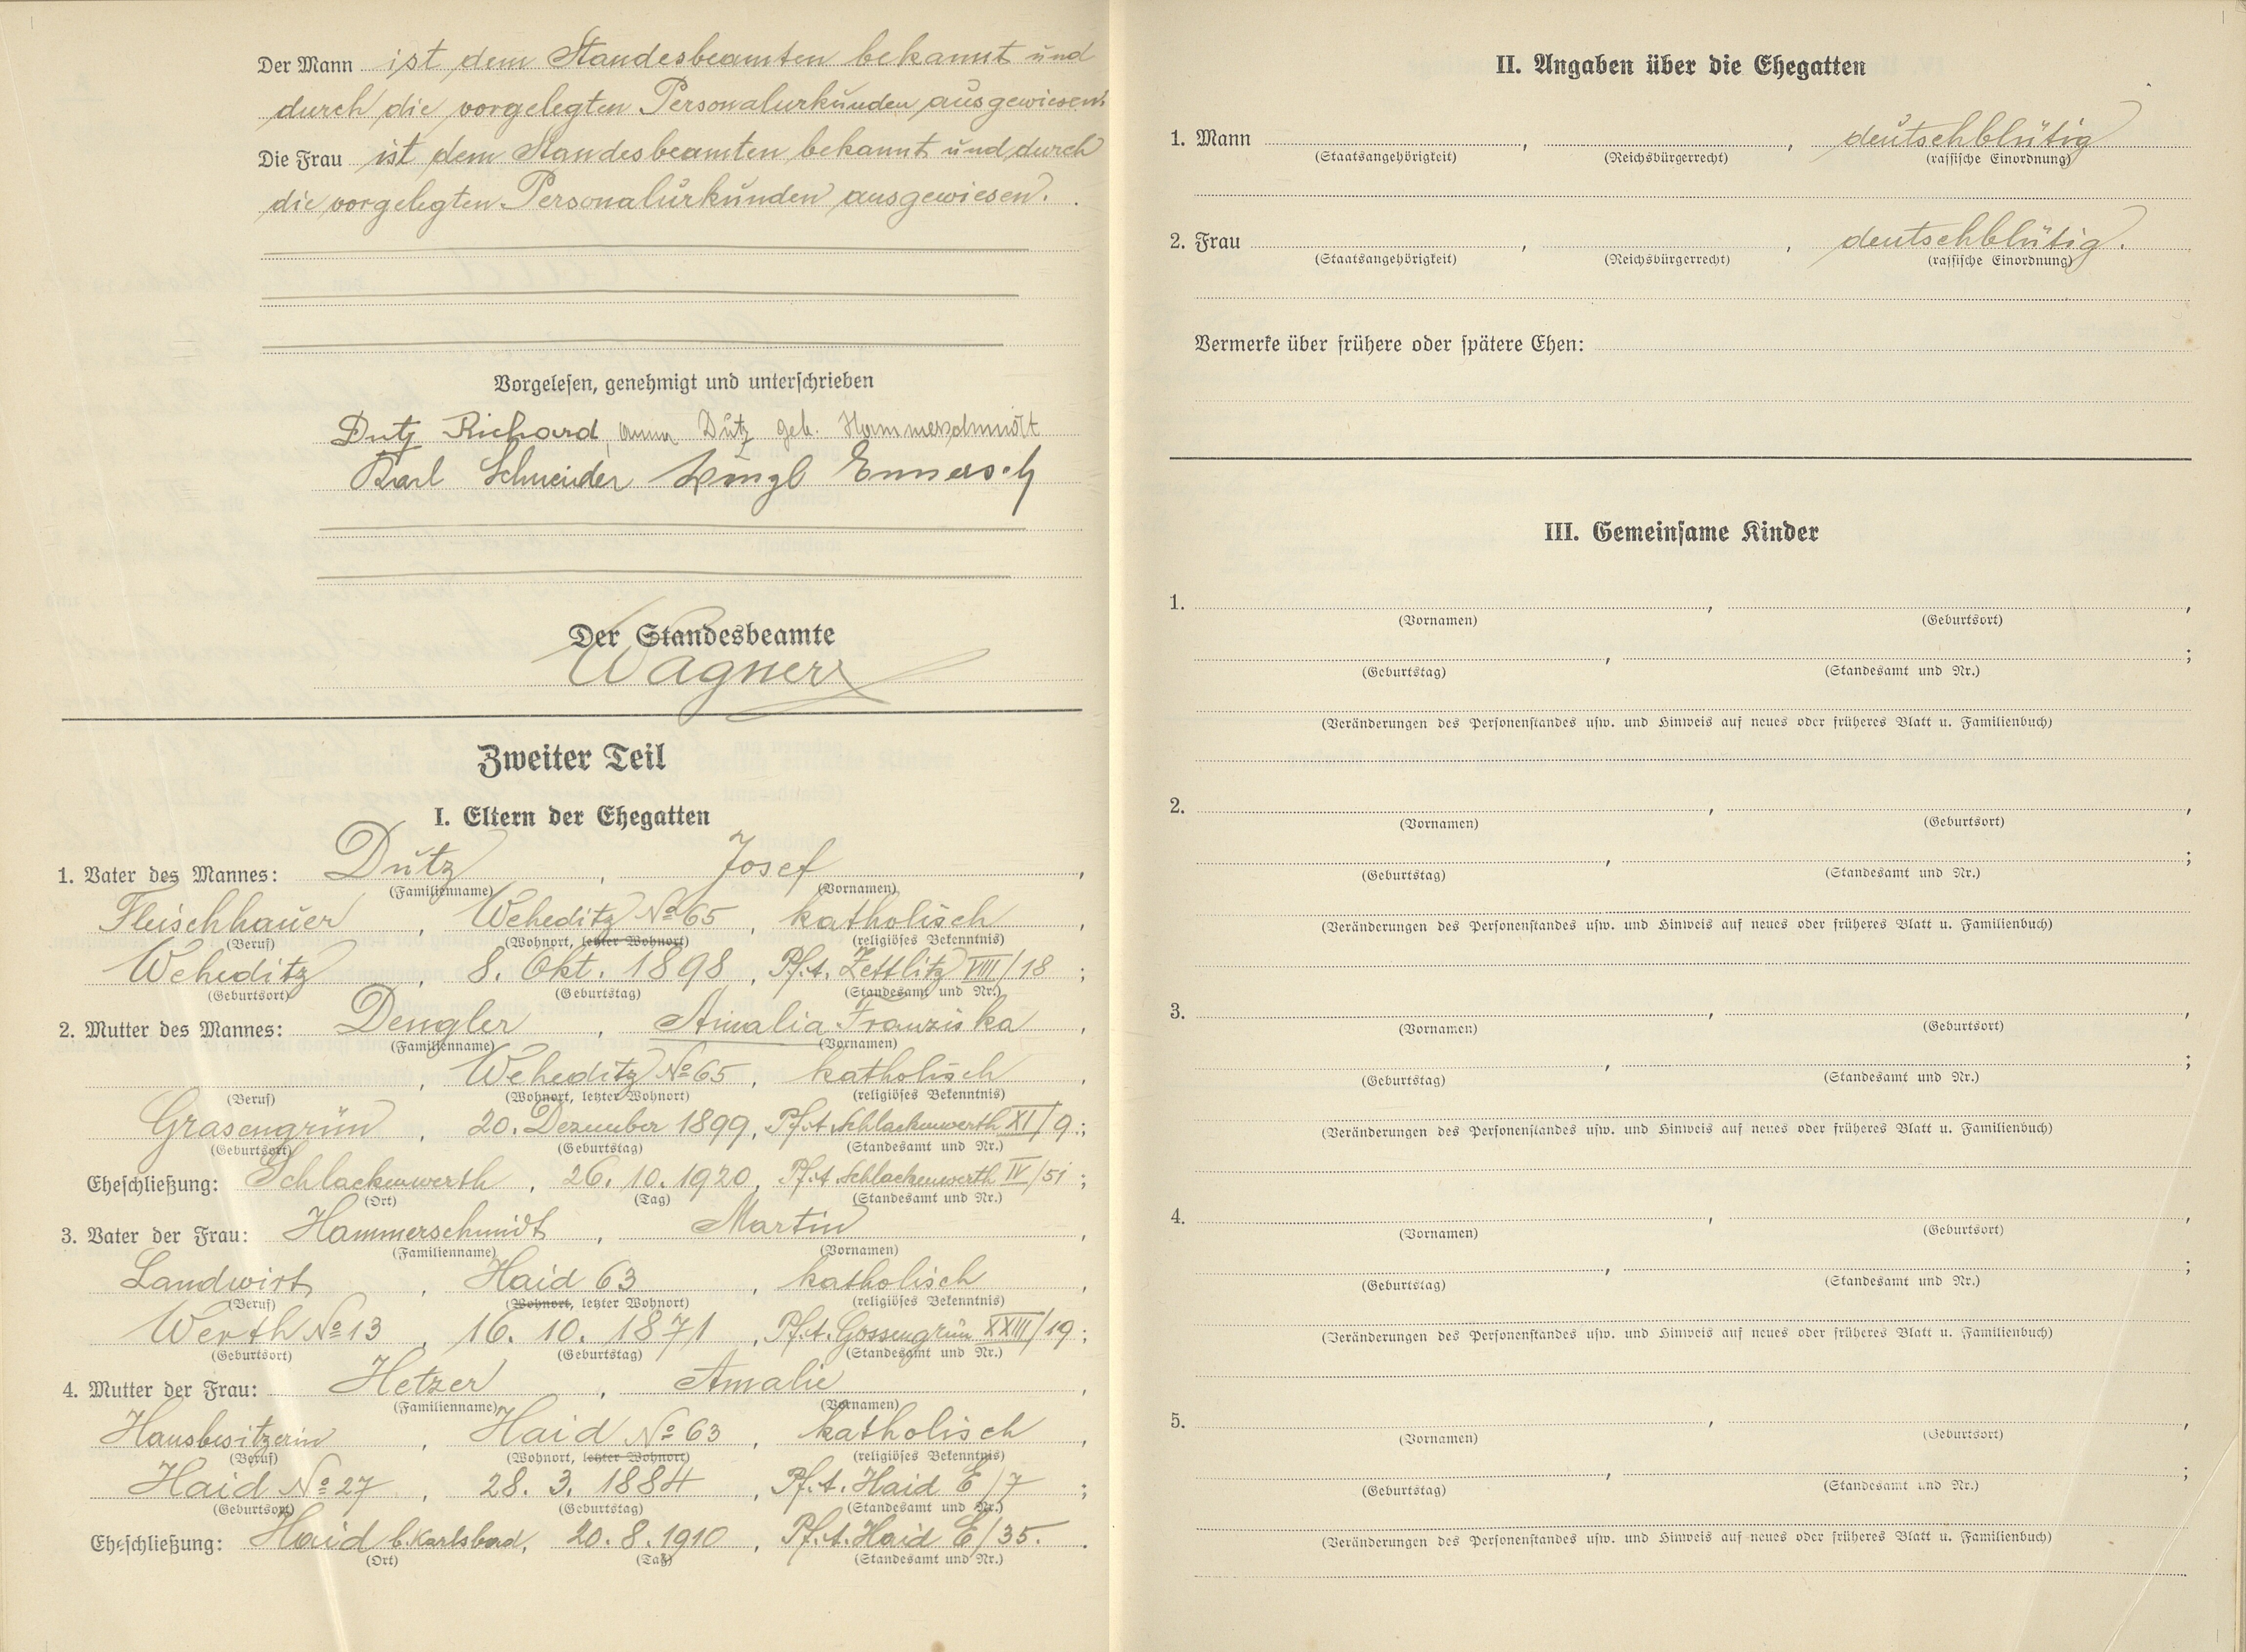 Der Mann ist dem Standesbeamten bekannt und
durch die vorgelegten Personalurkunden ausgewiesen.
Die Frau ist dem Standesbeamten bekannt und durch
die vorgelegten Personalurkunden ausgewiesen.
Vorgelesen, genehmigt und unterschrieben
Dutz Richard, Anna Dutz geb. Hammerschmidt
Karl Schneider
Der Standesbeamte
Wagner
Zweiter Teil
I. Eltern der Ehegatten
1. Vater des Mannes: Dutz, Josef,
(Familienname) (Vornamen)
Fleischhauer, Weheditz No 65, katholisch,
(Beruf) (Wohnort, letzter Wohnort) (religiöses Bekenntnis)
Weheditz, 8. Okt. 1898, Pf.A. Zettlitz VIII/18;
(Geburtsort) (Geburtstag) (Standesamt und Nr.)
2. Mutter des Mannes: Dengler, Amalia Franziska,
(Familienname) (Vornamen)
, Weheditz No 65, katholisch,
(Beruf) (Wohnort, letzter Wohnort) (religiöses Bekenntnis)
Grasengrün, 20. Dezember 1899, Pf.A Schlackenwerth XI/9;
(Geburtsort) (Geburtstag) (Standesamt und Nr.)
Eheschließung: Schlackenwerth, 26. 10. 1920, Pf.A Schlackenwerth IV/51;
(Ort) (Tag) (Standesamt und Nr.)
3. Vater der Frau: Hammerschmidt, Martin,
(Familienname) (Vornamen)
Landwirt, Haid 63, katholisch,
(Beruf) (Wohnort, letzter Wohnort) (religiöses Bekenntnis)
Werth No 13, 16. 10. 1871, Pf.A. Gossengrün XXIII/19;
(Geburtsort) (Geburtstag) (Standesamt und Nr.)
4. Mutter der Frau: Hetzer, Amalie,
(Familienname) (Vornamen)
Hausbesitzerin, Haid No 63, katholisch,
(Beruf) (Wohnort, letzter Wohnort) (religiöses Bekenntnis)
Haid No 27, 28. 3. 1884, Pf.A. Haid E/7;
(Geburtsort) (Geburtstag) (Standesamt und Nr.)
Eheschließung: Haid b. Karlsbad, 20. 8. 1910, Pf.A. Haid E/35.
(Ort) (Tag) (Standesamt und Nr.)
II. Angaben über die Ehegatten
1. Mann , , deutschblütig
(Staatsangehörigkeit) (Reichsbürgerrecht) (rassische Einordnung)
2. Frau , , deutschblütig.
(Staatsangehörigkeit) (Reichsbürgerrecht) (rassische Einordnung)
Vermerke über frühere oder spätere Ehen:
III. Gemeinsame Kinder
1. , ,
(Vornamen) (Geburtsort)
, ;
(Geburtstag) (Standesamt und Nr.)
(Veränderungen des Personenstandes usw. und Hinweis auf neues oder früheres Blatt u. Familienbuch)
2. , ,
(Vornamen) (Geburtsort)
, ;
(Geburtstag) (Standesamt und Nr.)
(Veränderungen des Personenstandes usw. und Hinweis auf neues oder früheres Blatt u. Familienbuch)
3. , ,
(Vornamen) (Geburtsort)
, ;
(Geburtstag) (Standesamt und Nr.)
(Veränderungen des Personenstandes usw. und Hinweis auf neues oder früheres Blatt u. Familienbuch)
4. , ,
(Vornamen) (Geburtsort)
, ;
(Geburtstag) (Standesamt und Nr.)
(Veränderungen des Personenstandes usw. und Hinweis auf neues oder früheres Blatt u. Familienbuch)
5. , ,
(Vornamen) (Geburtsort)
, ;
(Geburtstag) (Standesamt und Nr.)
(Veränderungen des Personenstandes usw. und Hinweis auf neues oder früheres Blatt u. Familienbuch)